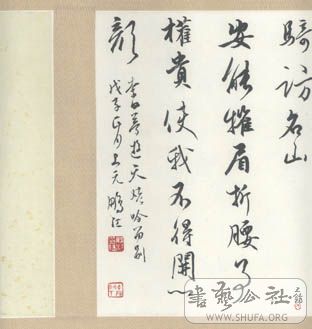 骑访名山
安能摧眉折腰事
權貴使我不得開心
顔
李白夢遊天姥吟留別
戊子正月上元鵬江
書藝公社
WWW.SHUFA.ORG